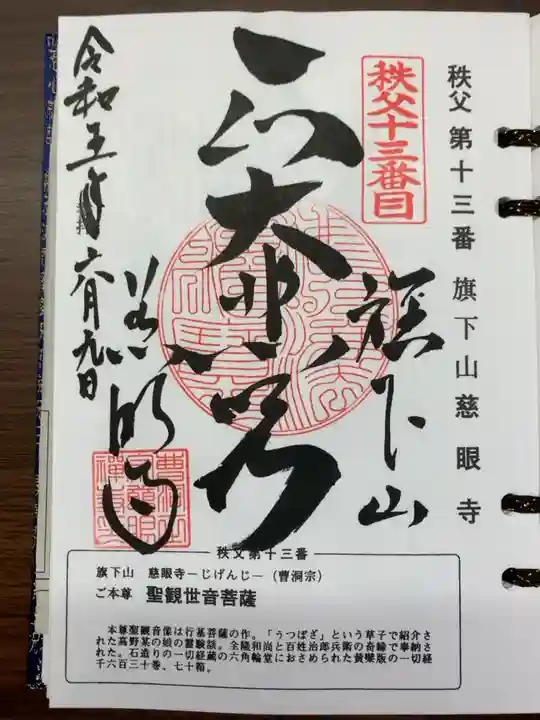 秩父 第十三番 旗下山 慈眼寺
秩父十三番目
旗下山
大悲
慈眼寺
令和五年六月九日
秩父第十三番
旗下山　慈眼寺―じげんじ―（曹洞宗）
ご本尊　聖観世音菩薩
本尊聖観音像は行基菩薩の作。「うつぼざ」という草子で紹介さ
れた高野某の娘の霊験談。全隆和尚と百姓治郎兵衛の奇縁で奉納さ
れた。石造りの一切経蔵の六角輪堂におさめられた黄檗版の一切経
千六百三十巻、七十箱。